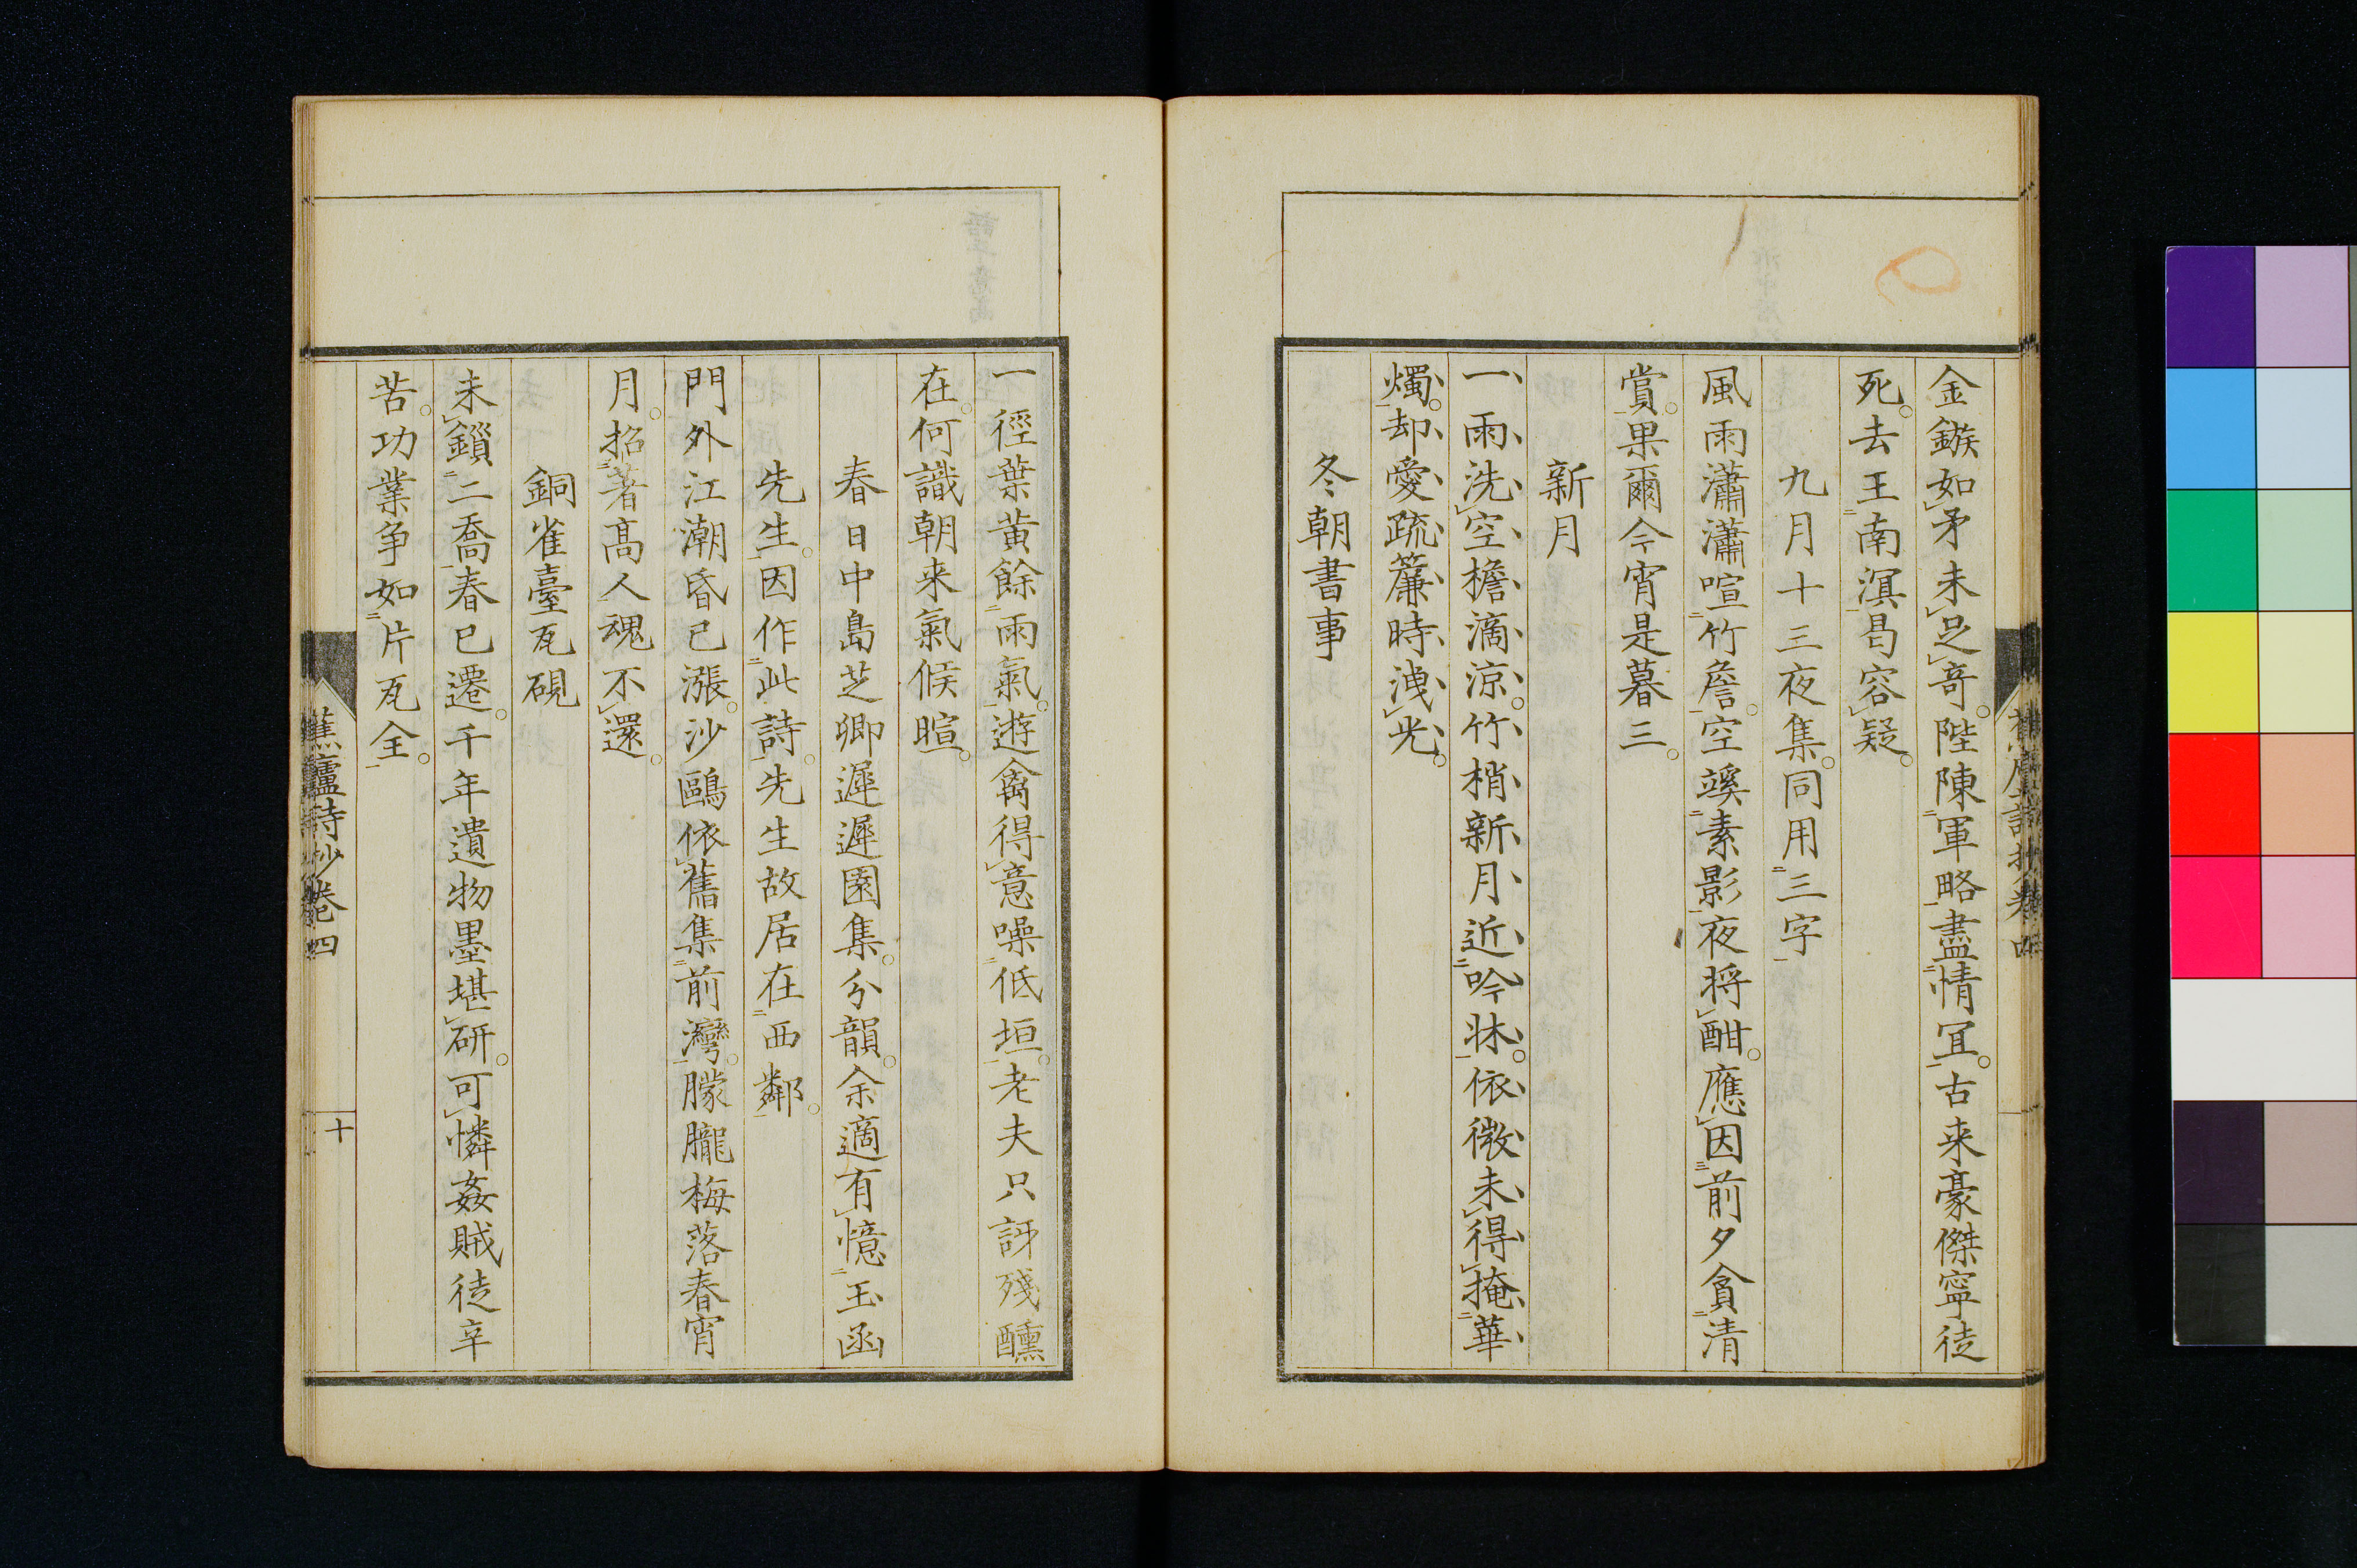 金鏃如矛未足奇陛陳軍略盡情冝古来豪傑寧徒
死去王南溟曷容疑
九月十三夜集同用三字
風雨瀟瀟喧竹詹空竢素影夜将酣應因前夕貪清
賞果爾今宵是暮三
新月
一雨洗空檐滴涼竹梢新月近吟牀依微未得掩華
燭却愛疏簾時洩光
冬朝書事
一徑葉黄餘雨氣遊禽得意噪低垣老夫只訝殘醺
在何識朝来氣候暄
春日中島芝卿遲遲園集分韻余適有憶玉函
先生因作此詩先生故居在西鄰
門外江潮昏已漲沙鷗依舊集前灣朦朧梅落春宵
月招著髙人魂不還
銅雀臺瓦硯
未鎻二喬春已遷千年遺物墨堪研可憐姦賊徒辛
苦功業争如片瓦全
蕉廬詩抄卷四
十